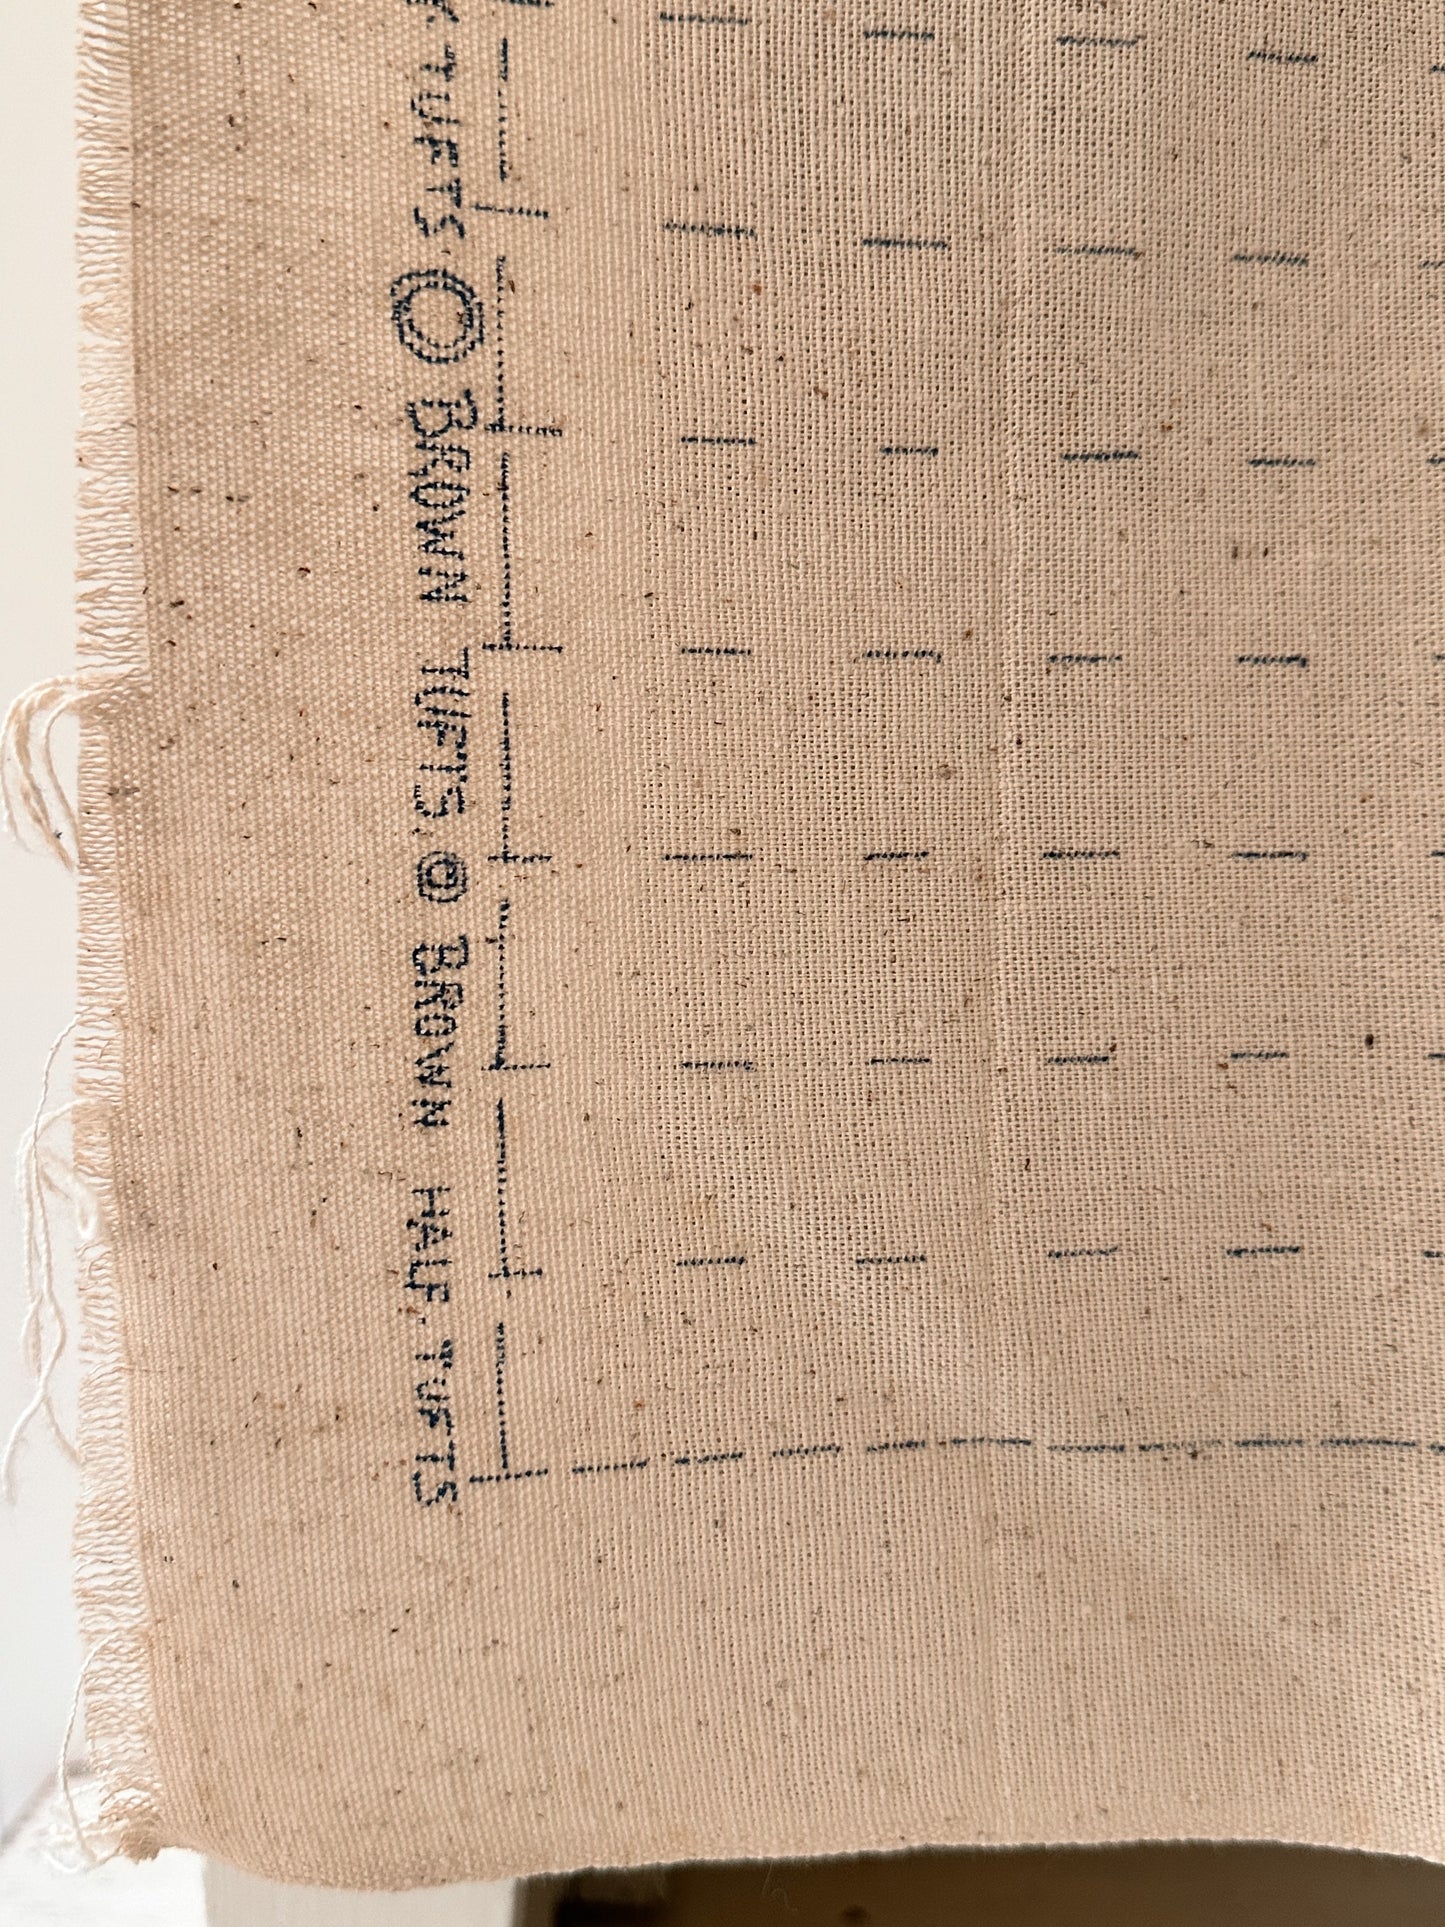 TUFTS. ◎ BROWN TUFTS. ◎ BROWN HALF.TUFTS